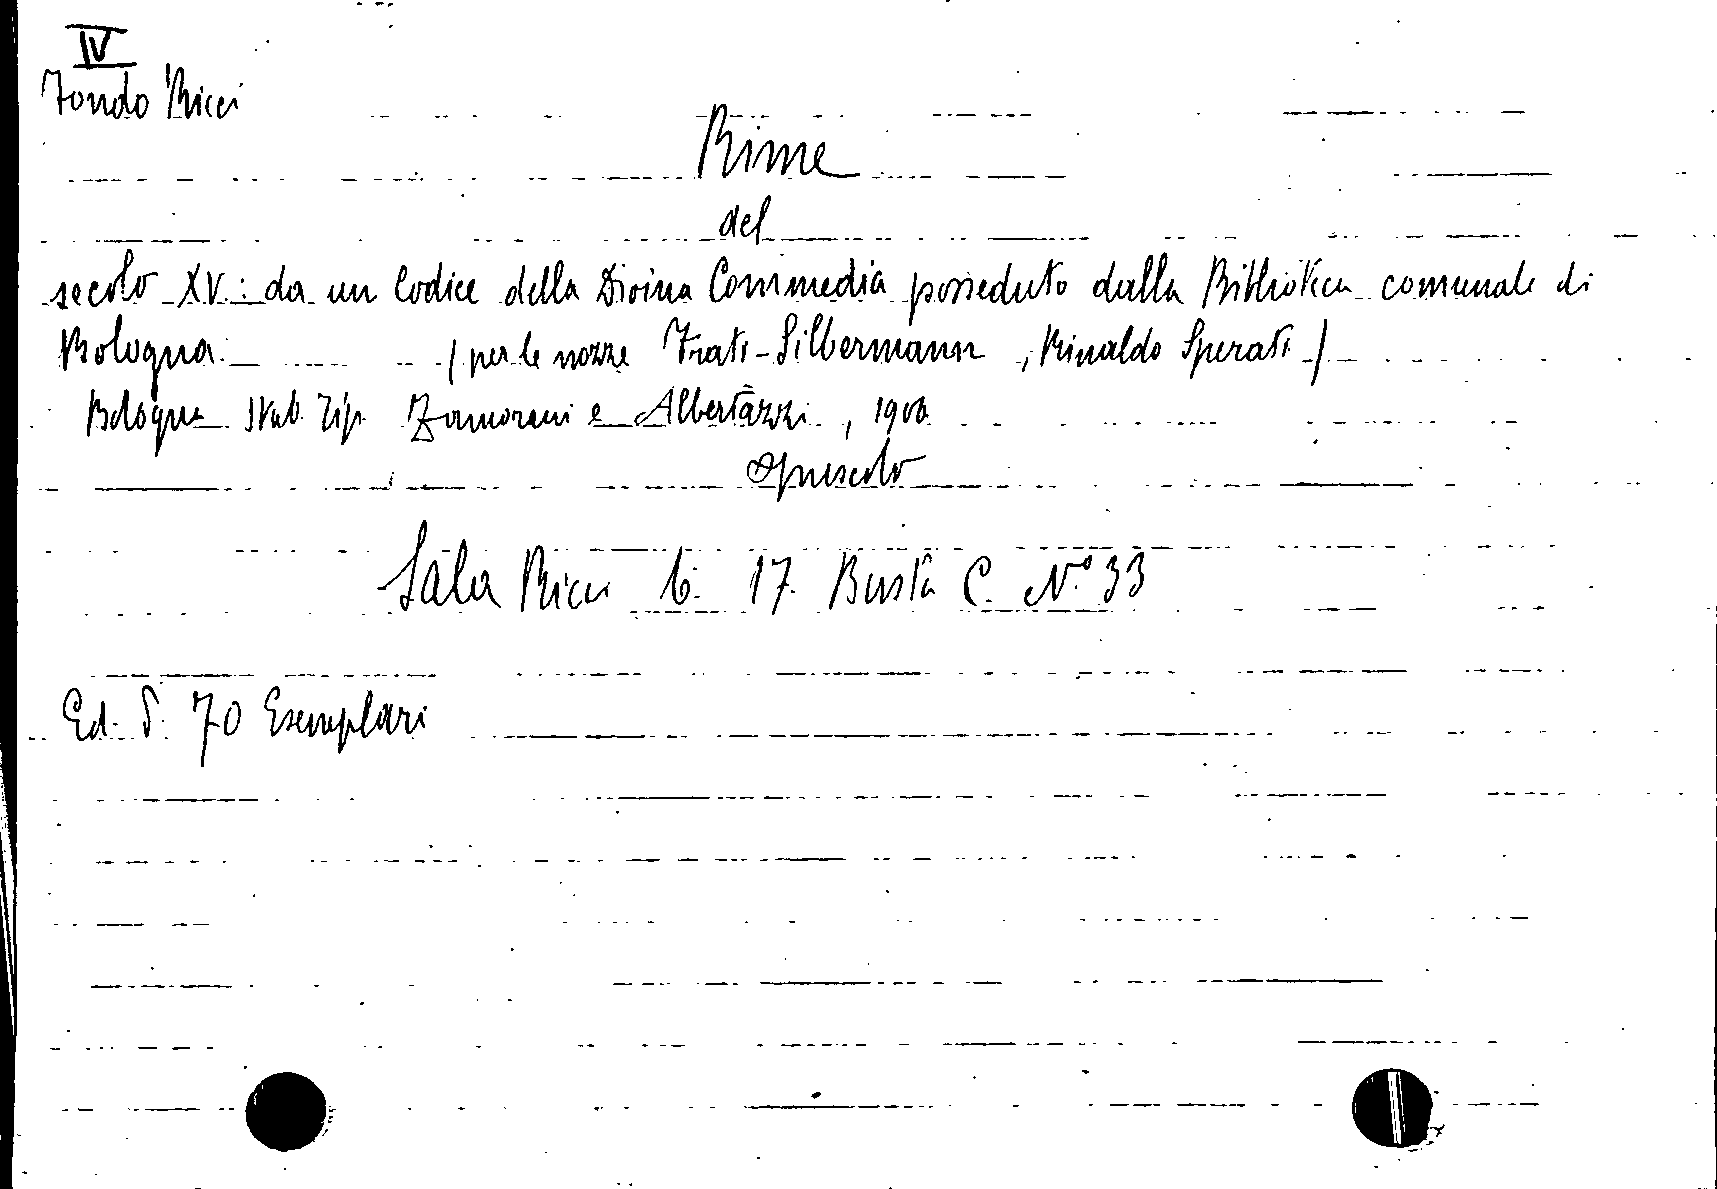 IV
Fondo Ricci
Rime
del
secolo XV: da un Codice della Divina Commedia posseduto dalla Biblioteca comunale di
Bologna. (per le nozze Frati-Silbermann, Rinaldo Sperati)
Bologna Stab. Tip. Zamorani e Albertazzi, 1906
opuscolo
Sala Ricci 6. 17. Busta C. N.° 33
Ed. d. 70 Esemplari